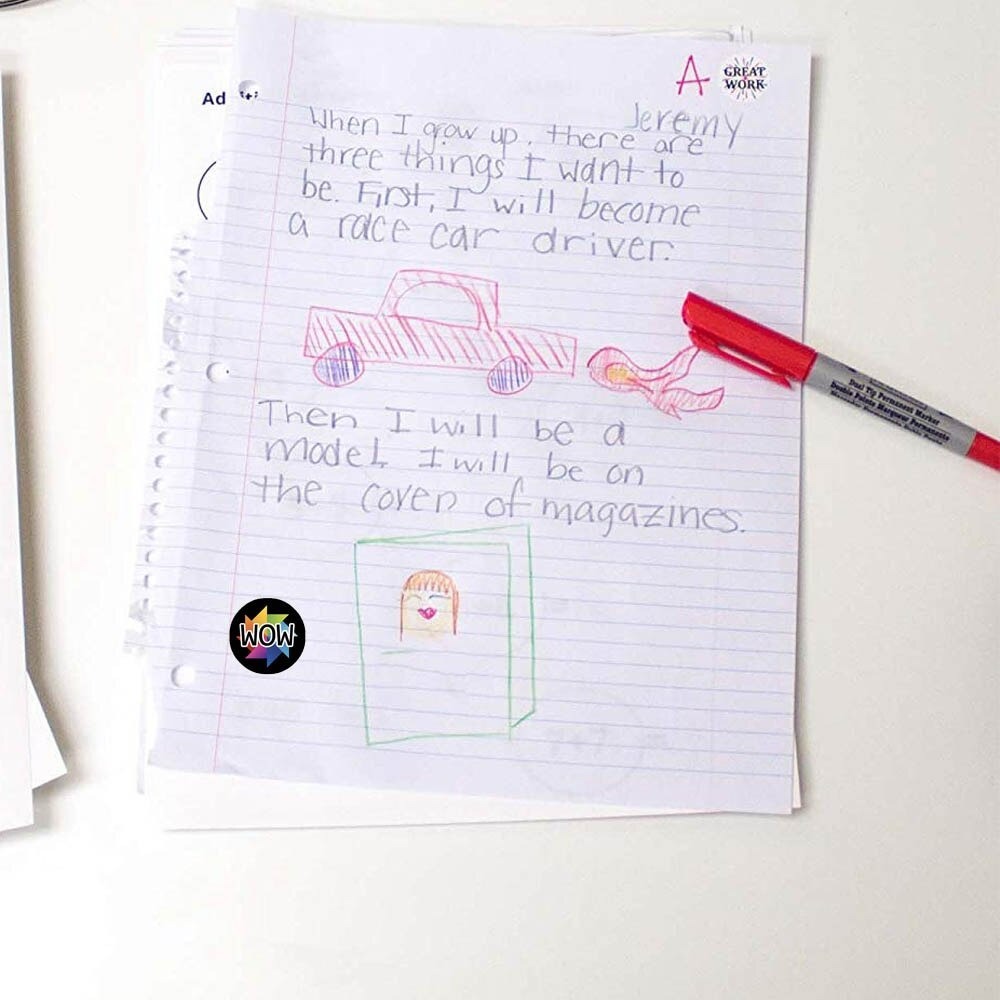 Ad
A
GREAT
WORK
Jeremy
When I grow up, there are
three things I want to
be. First, I will become
a race car driver.
Then I will be a
model. I will be on
the cover of magazines.
WOW
Dual Tip Permanent Marker